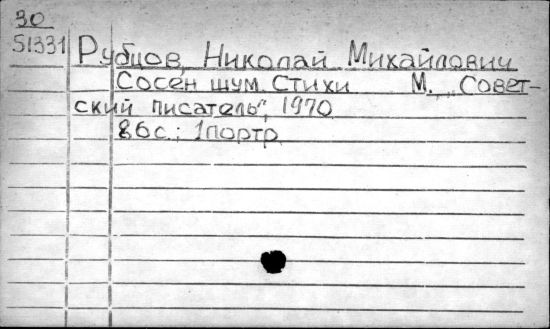 30
51331 Рубцов, Николай Михайлович
Сосен шум. Стихи М., „Совет-
ский писатель", 1970
86с.; 1портр.